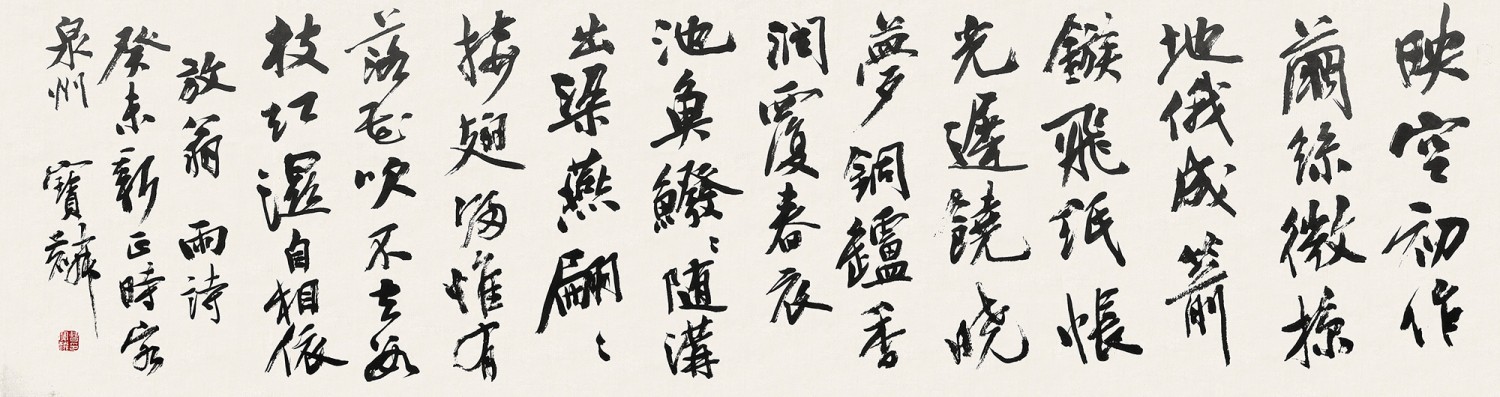 映空初作
繭絲微掠
地俄成箭
鏃飛紙帳
光遲饒曉
夢銅鑪香
潤覆春衣
池魚鱍〻随溝
出梁燕翩〻
接翅歸惟有
落花吹不去数
枝紅濕自相依
放翁 雨詩
癸未新正時客
泉州 寶